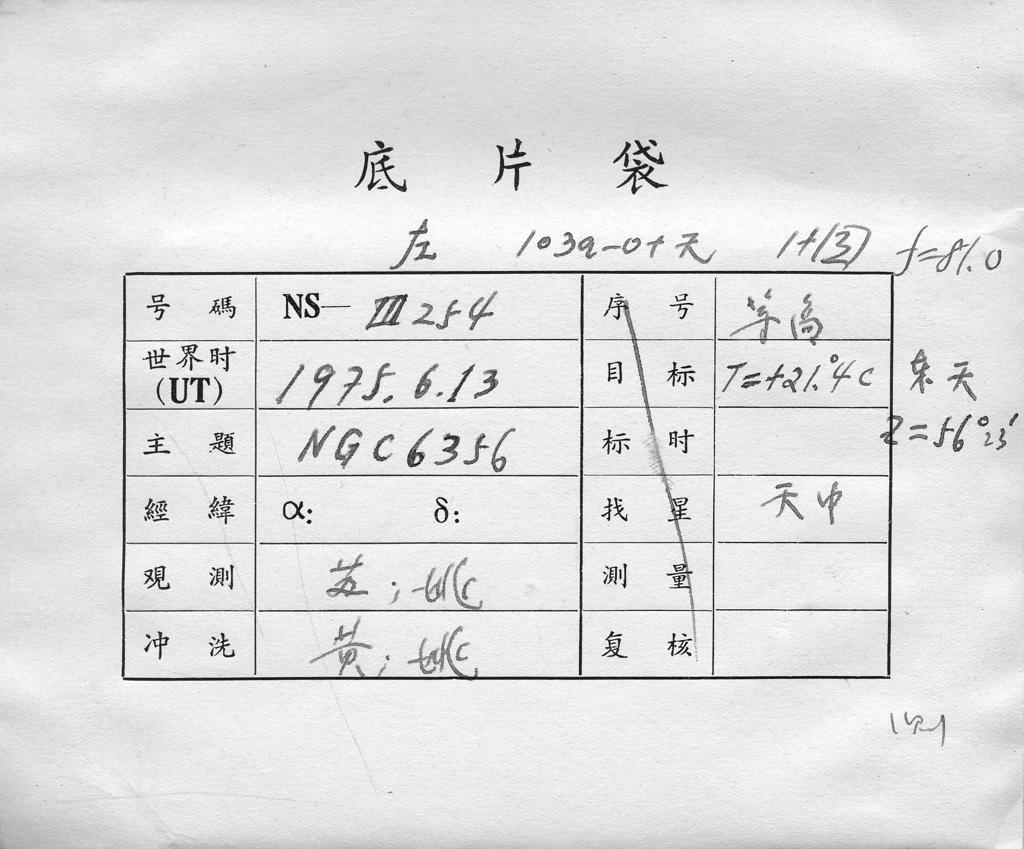 底片袋
左 103a-0+天 1+③ f=81.0
号碼 NS—Ⅲ254 序号 等高
世界时(UT) 1975.6.13 目标 T=+21.°4C 东天
主題 NGC6356 标时 Z=56°23′
經緯 α: δ: 找星 天中
观测 苏;姚 测量
冲洗 黄;姚 复核